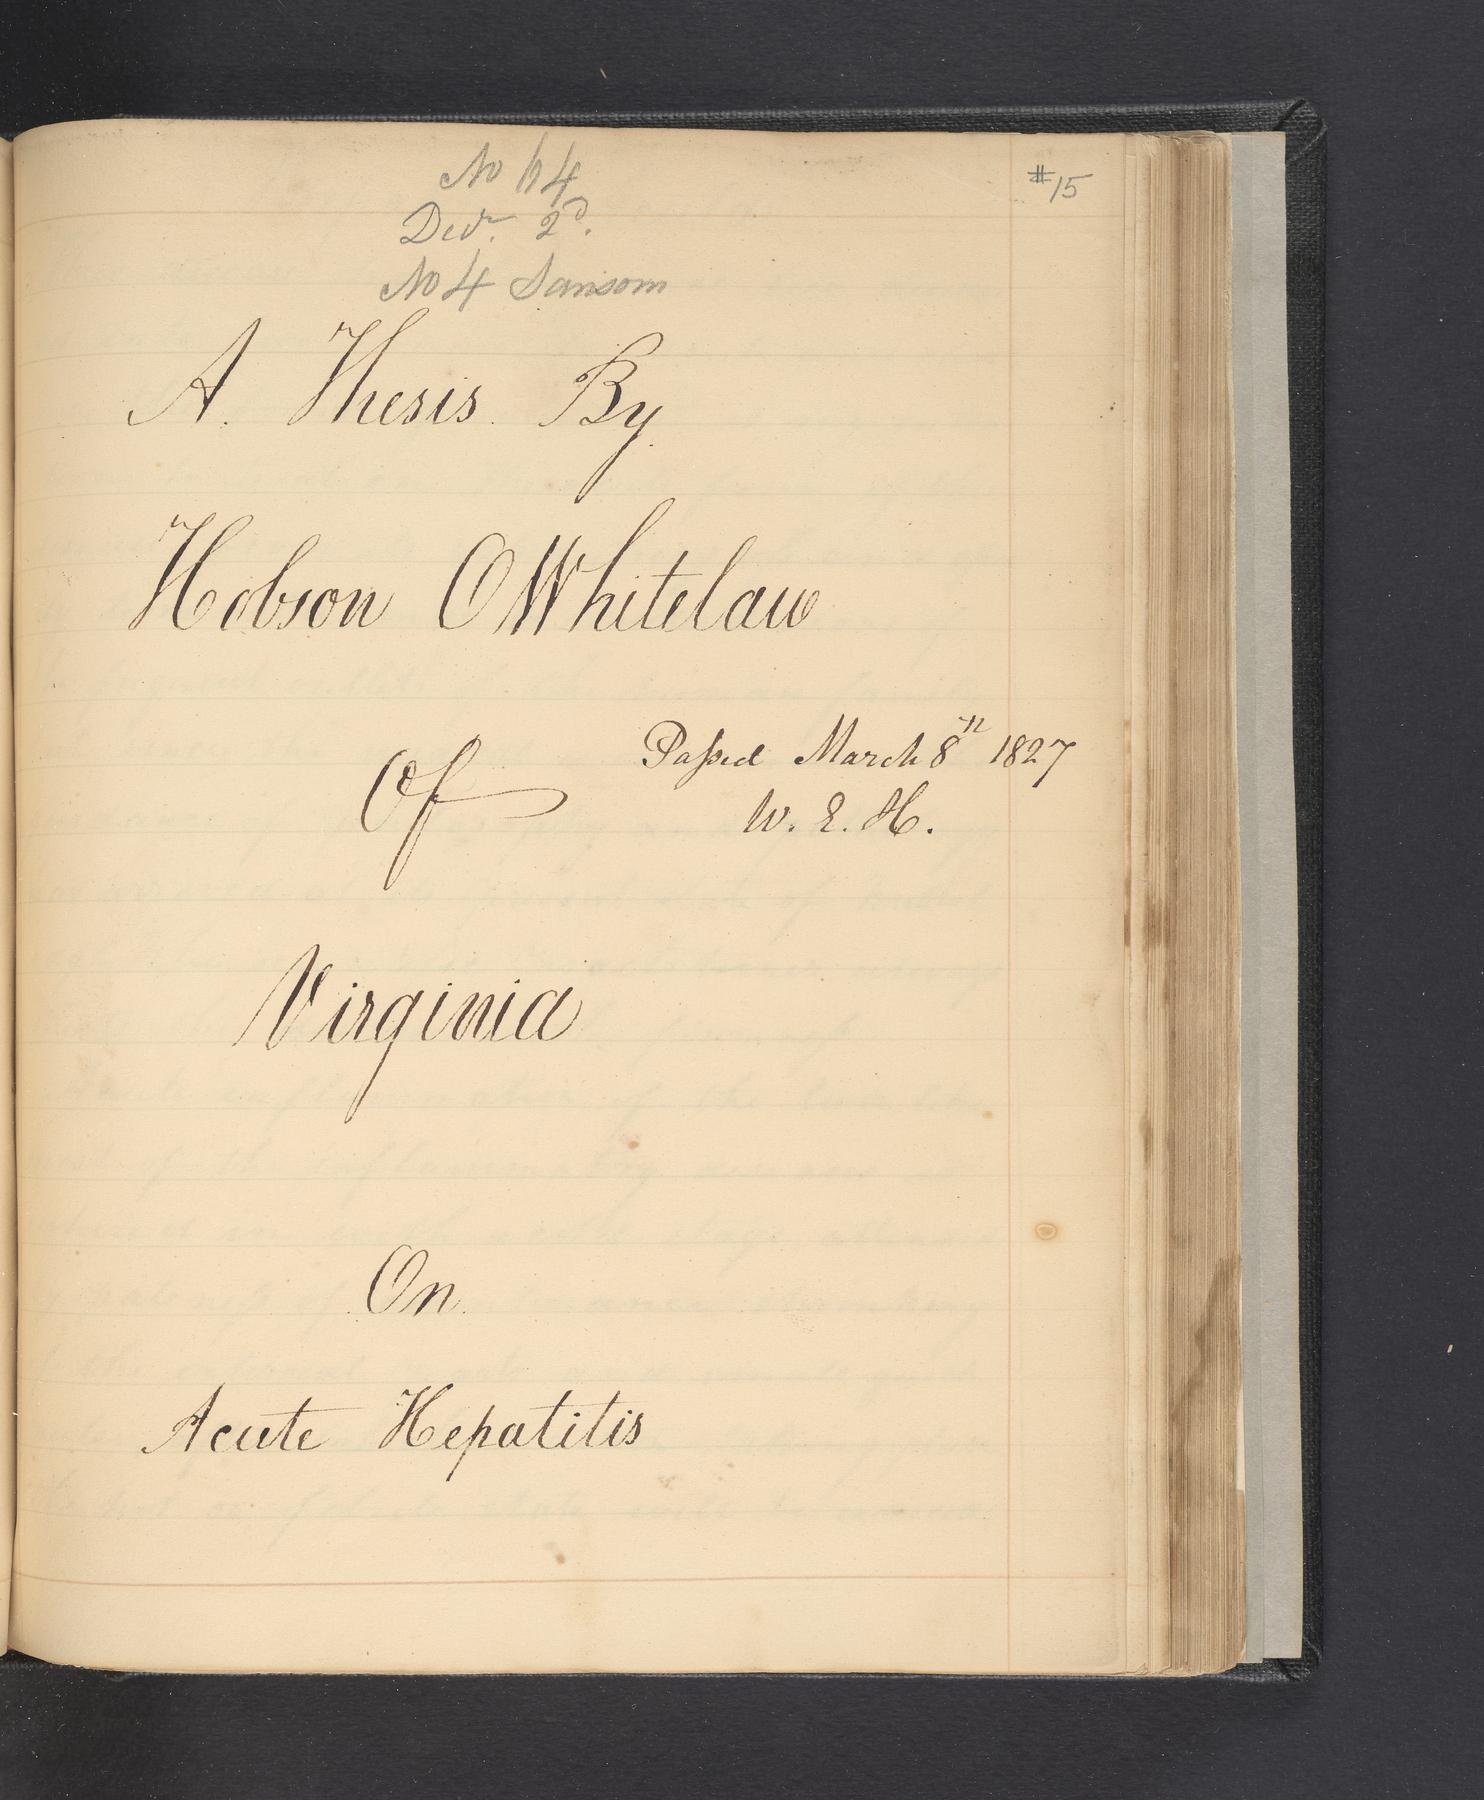 No 64
#15
Decr. 2d.
No 4 Sansom
A. Thesis By
Hobson O Whitelaw
Of
Passed March 8th 1827
W. E. H.
Virginia
On
Acute Hepatitis